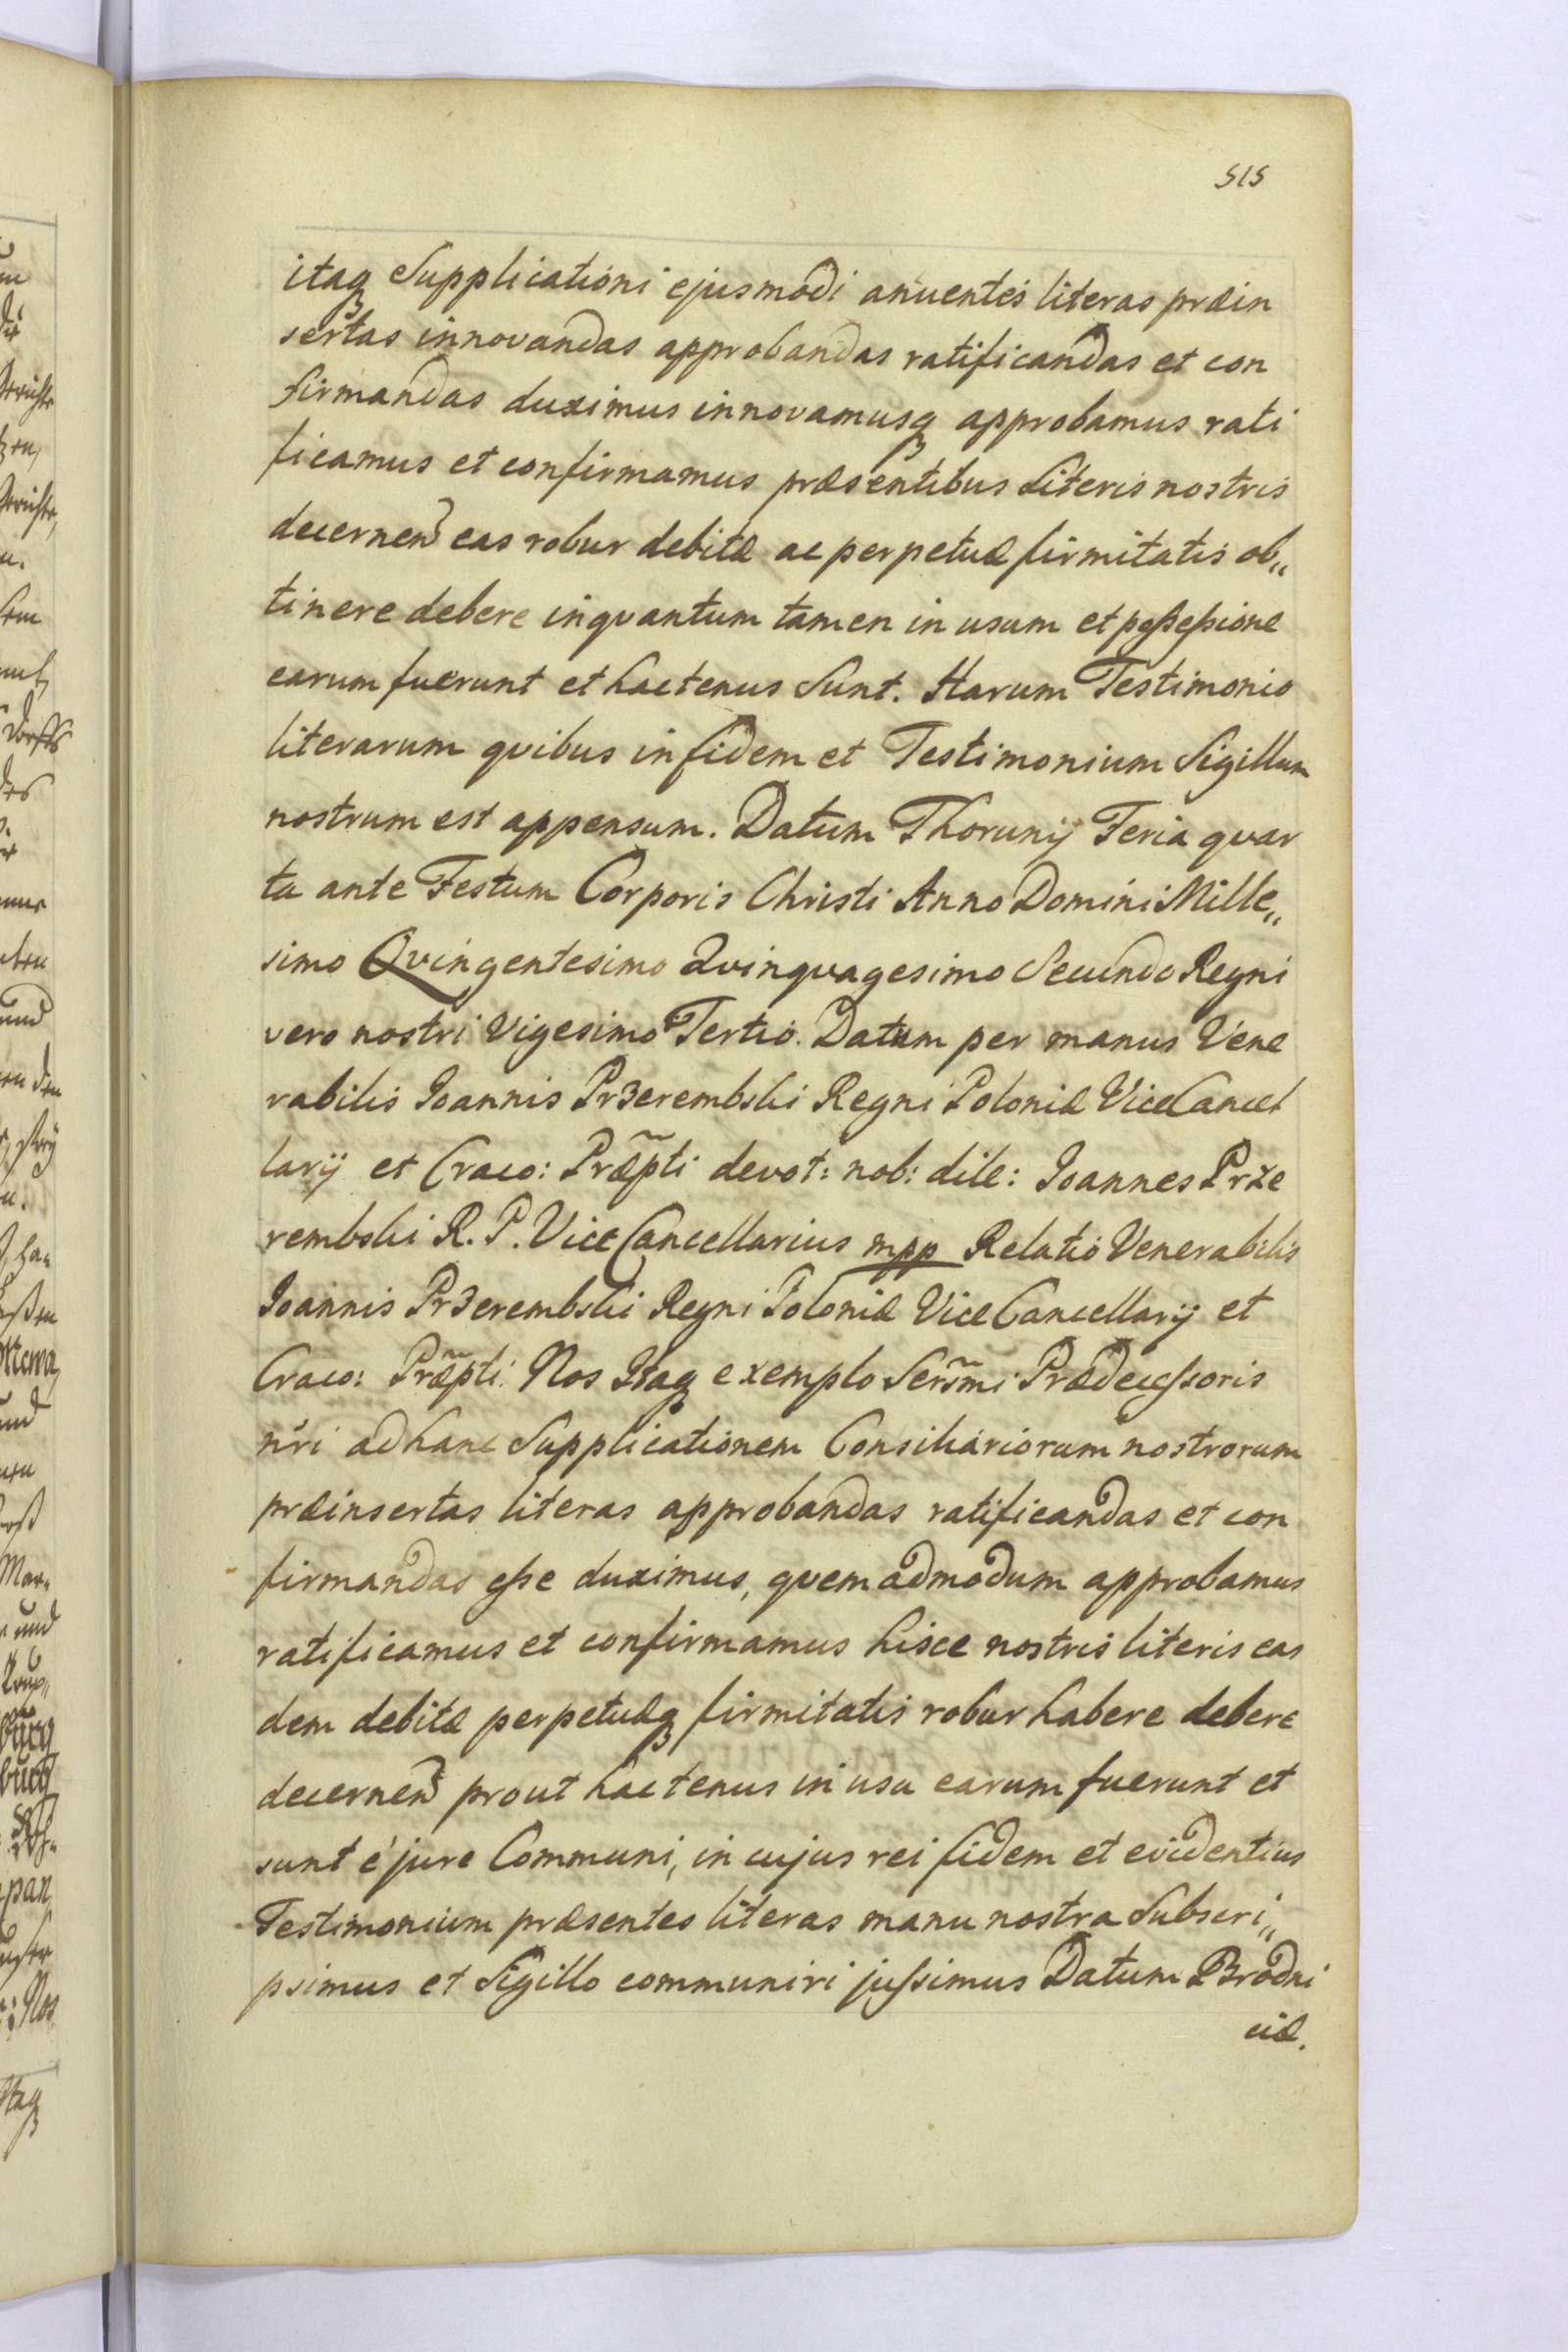 515
itaq Supplicationi ejusmodi anuentes literas præin
sertas innovandas approbandas ratificandas et con
firmandas duximus innovamusq approbamus rati
ficamus et confirmamus præsentibus Literis nostris
decernen eas robur debitæ ac perpetuæ firmitatis ob„
tinere debere inqvantum tamen in usum et poßeßione
earum fuerunt et hactenus Sunt. Harum Testimonio
literarum qvibus in fidem et Testimonium Sigillum
nostrum est appensum. Datum Thorunij Feria qvar
ta ante Festum Corporis Christi Anno Domini Mille„
simo Qvingentesimo Qvinqvagesimo Secundo Regni
vero nostri Vigesimo Tertio. Datum per manus Vene
rabilis Joannis Przerembski Regni Poloniæ ViceCancel
larij et Craco: Præp̃ti devot: nob: dile: Joannes Prze
rembski R. P. ViceCancellarius mpp Relatio Venerabilis
Joannis Przerembski Regni Poloniæ ViceCancellarij et
Craco: Præp̃ti. Nos Itaq exemplo Serm̃i Prædeceßoris
nr̃i ad hanc Supplicationem Consiliariorum nostrorum
præinsertas literas approbandas ratificandas et con
firmandas eße duximus, qvemadmodum approbamus
ratificamus et confirmamus hisce nostris literis eas
dem debitæ perpetuæq firmitatis robur habere debere
decernen prout hactenus in usu earum fuerunt et
sunt é jure Communi, in cujus rei fidem et evidentius
Testimonium præsentes literas manu nostra Subscri„
psimus et Sigillo communiri jußimus Datum Brodni
ciæ.